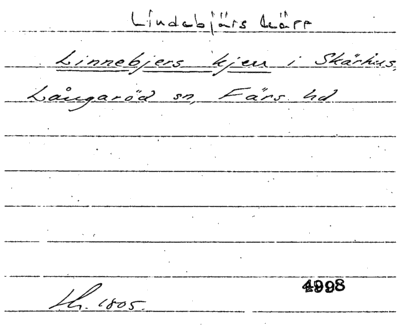 Lindebjärs kärr
Linnebjers kjen i Skärhus,
Långaröd sn, Färs hd
4998
Lh. 1805.